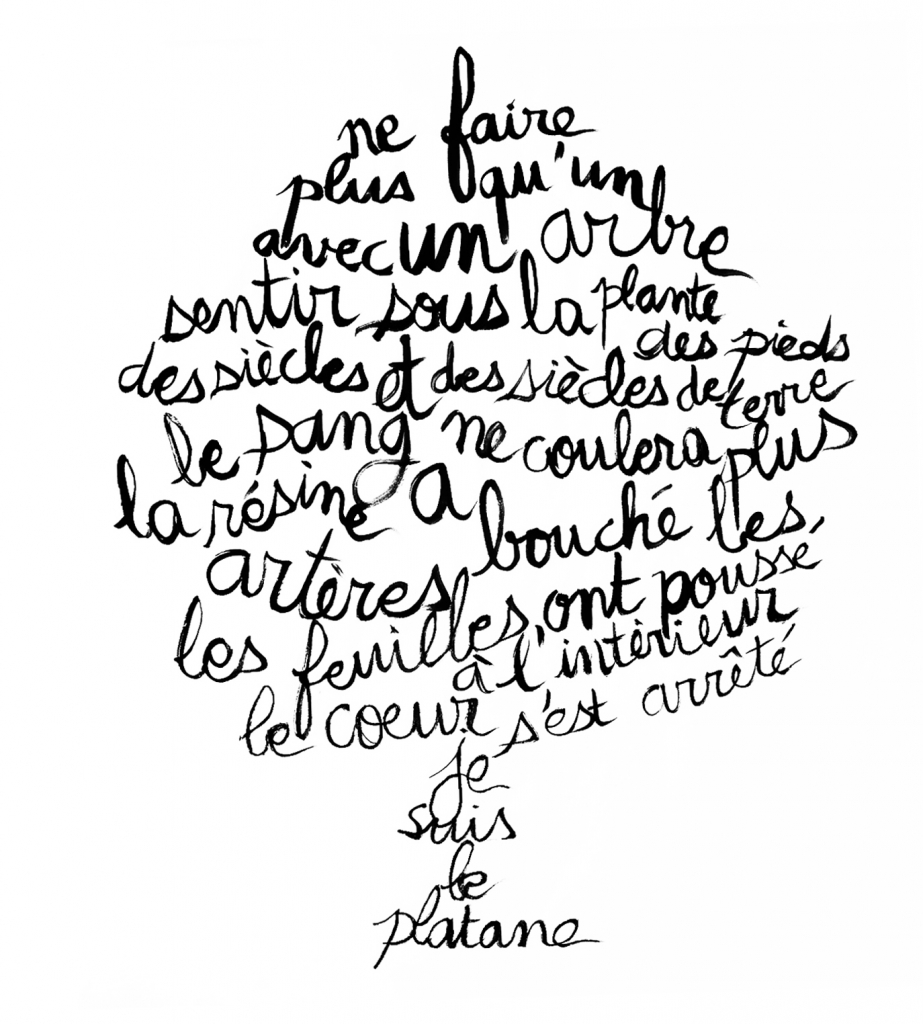 ne faire
plus qu'un
avec un arbre
sentir sous la plante
des pieds
des siècles et des siècles de terre
le sang ne coulera plus
la résine a bouché les
artères
les feuilles ont poussé
à l'intérieur
le coeur s'est arrêté
je
suis
le
platane